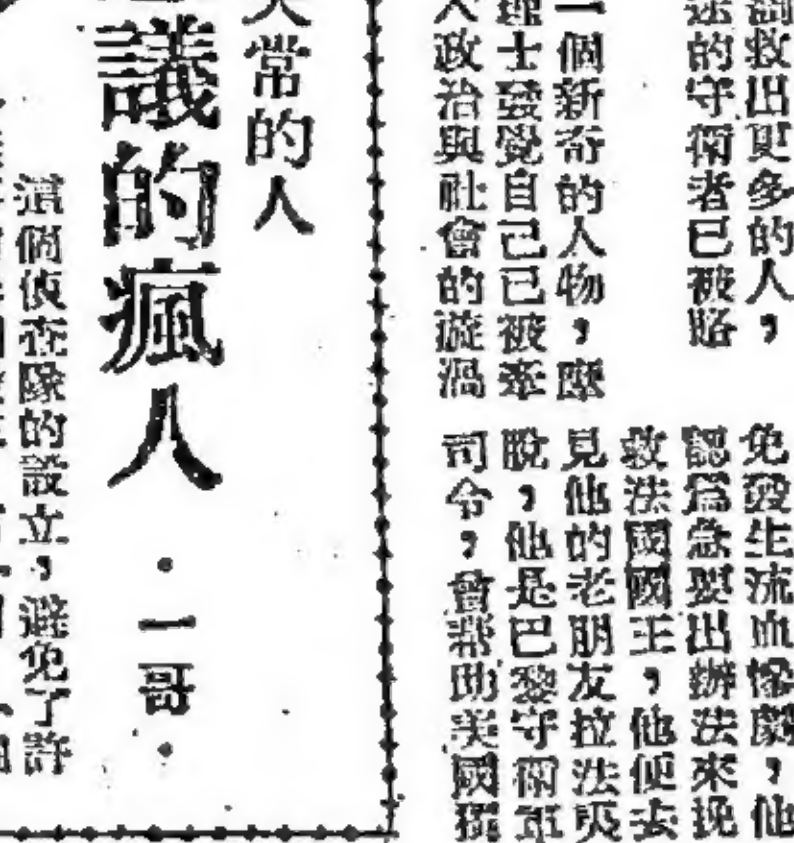 救出更多的人，
的守衛者已被賂
一個新奇的人物，摩
理士發覺自己已被牽
入政治與社會的漩渦
免發生流血慘劇，他
認爲急要出辦法來挽
救法國國王，他便去
見他的老朋友拉法夷
脫，他是巴黎守衛軍
司令，曾幫助美國獨
常的人
議的瘋人
·一哥·
這個偵查隊的設立，避免了許